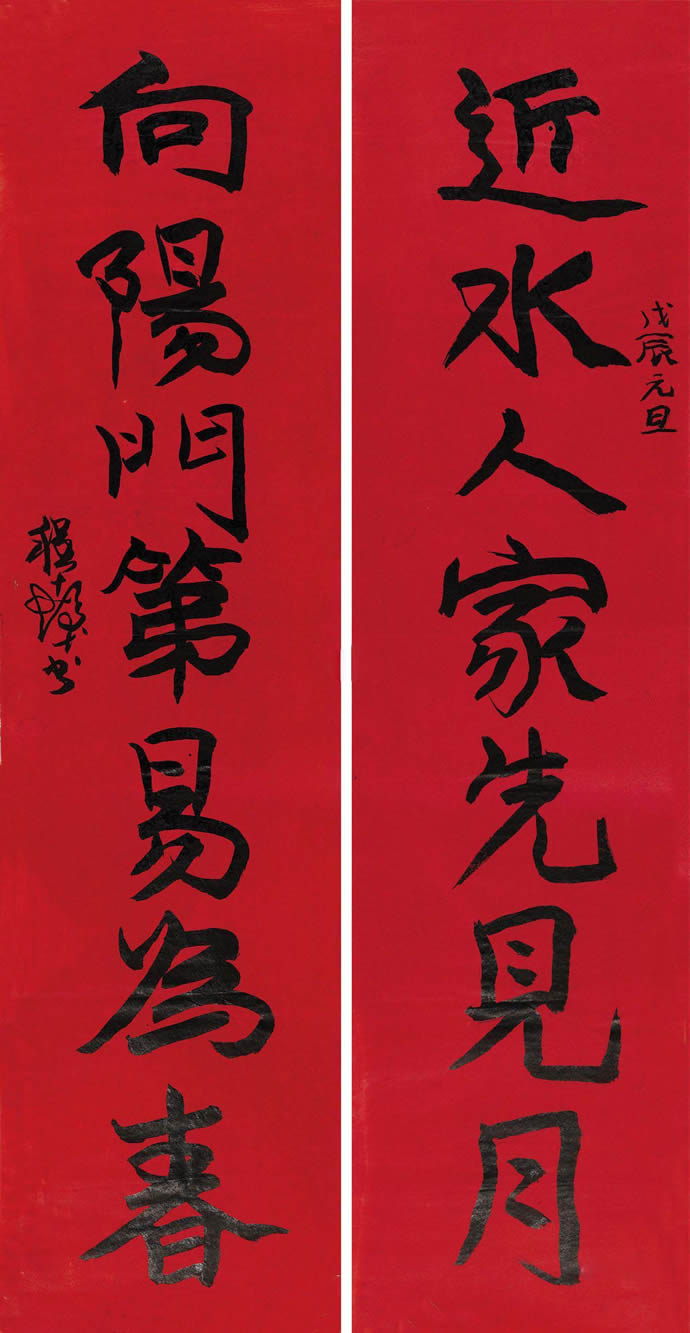 近水人家先見月
戊辰元旦
向陽門第易為春
程十髮书